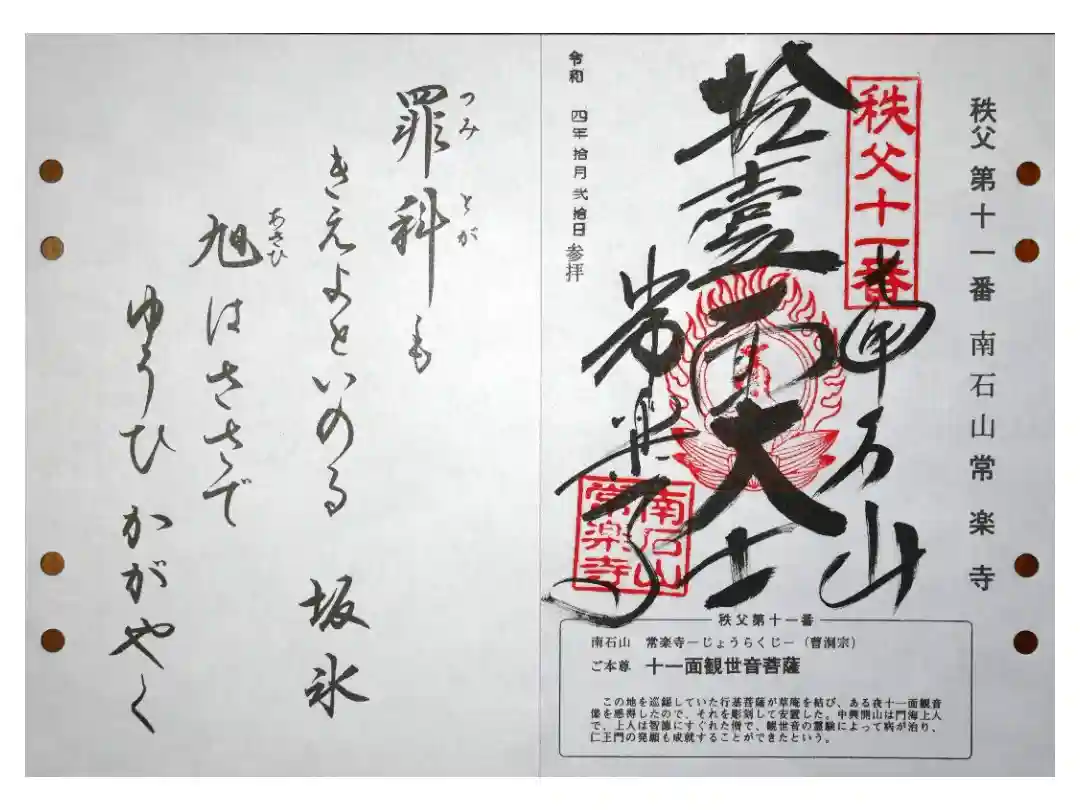 秩父第十一番 南石山常楽寺
秩父十一番
南石山
拾壹面大士
常楽寺
南石山
常楽寺
令和 四年拾月弐拾日参拝
秩父第十一番
南石山 常楽寺－じょうらくじ－（曹洞宗）
ご本尊 十一面観世音菩薩
この地を巡錫していた行基菩薩が草庵を結び、ある夜十一面観音
像を感得したので、それを彫刻して安置した。中興開山は門海上人
で、上人は智徳にすぐれた僧で、観世音の霊験によって病が治り、
仁王門の発願も成就することができたという。
つみ とが
罪科も
きえよといのる 坂氷
あさひ
旭はささで
ゆうひ かがやく